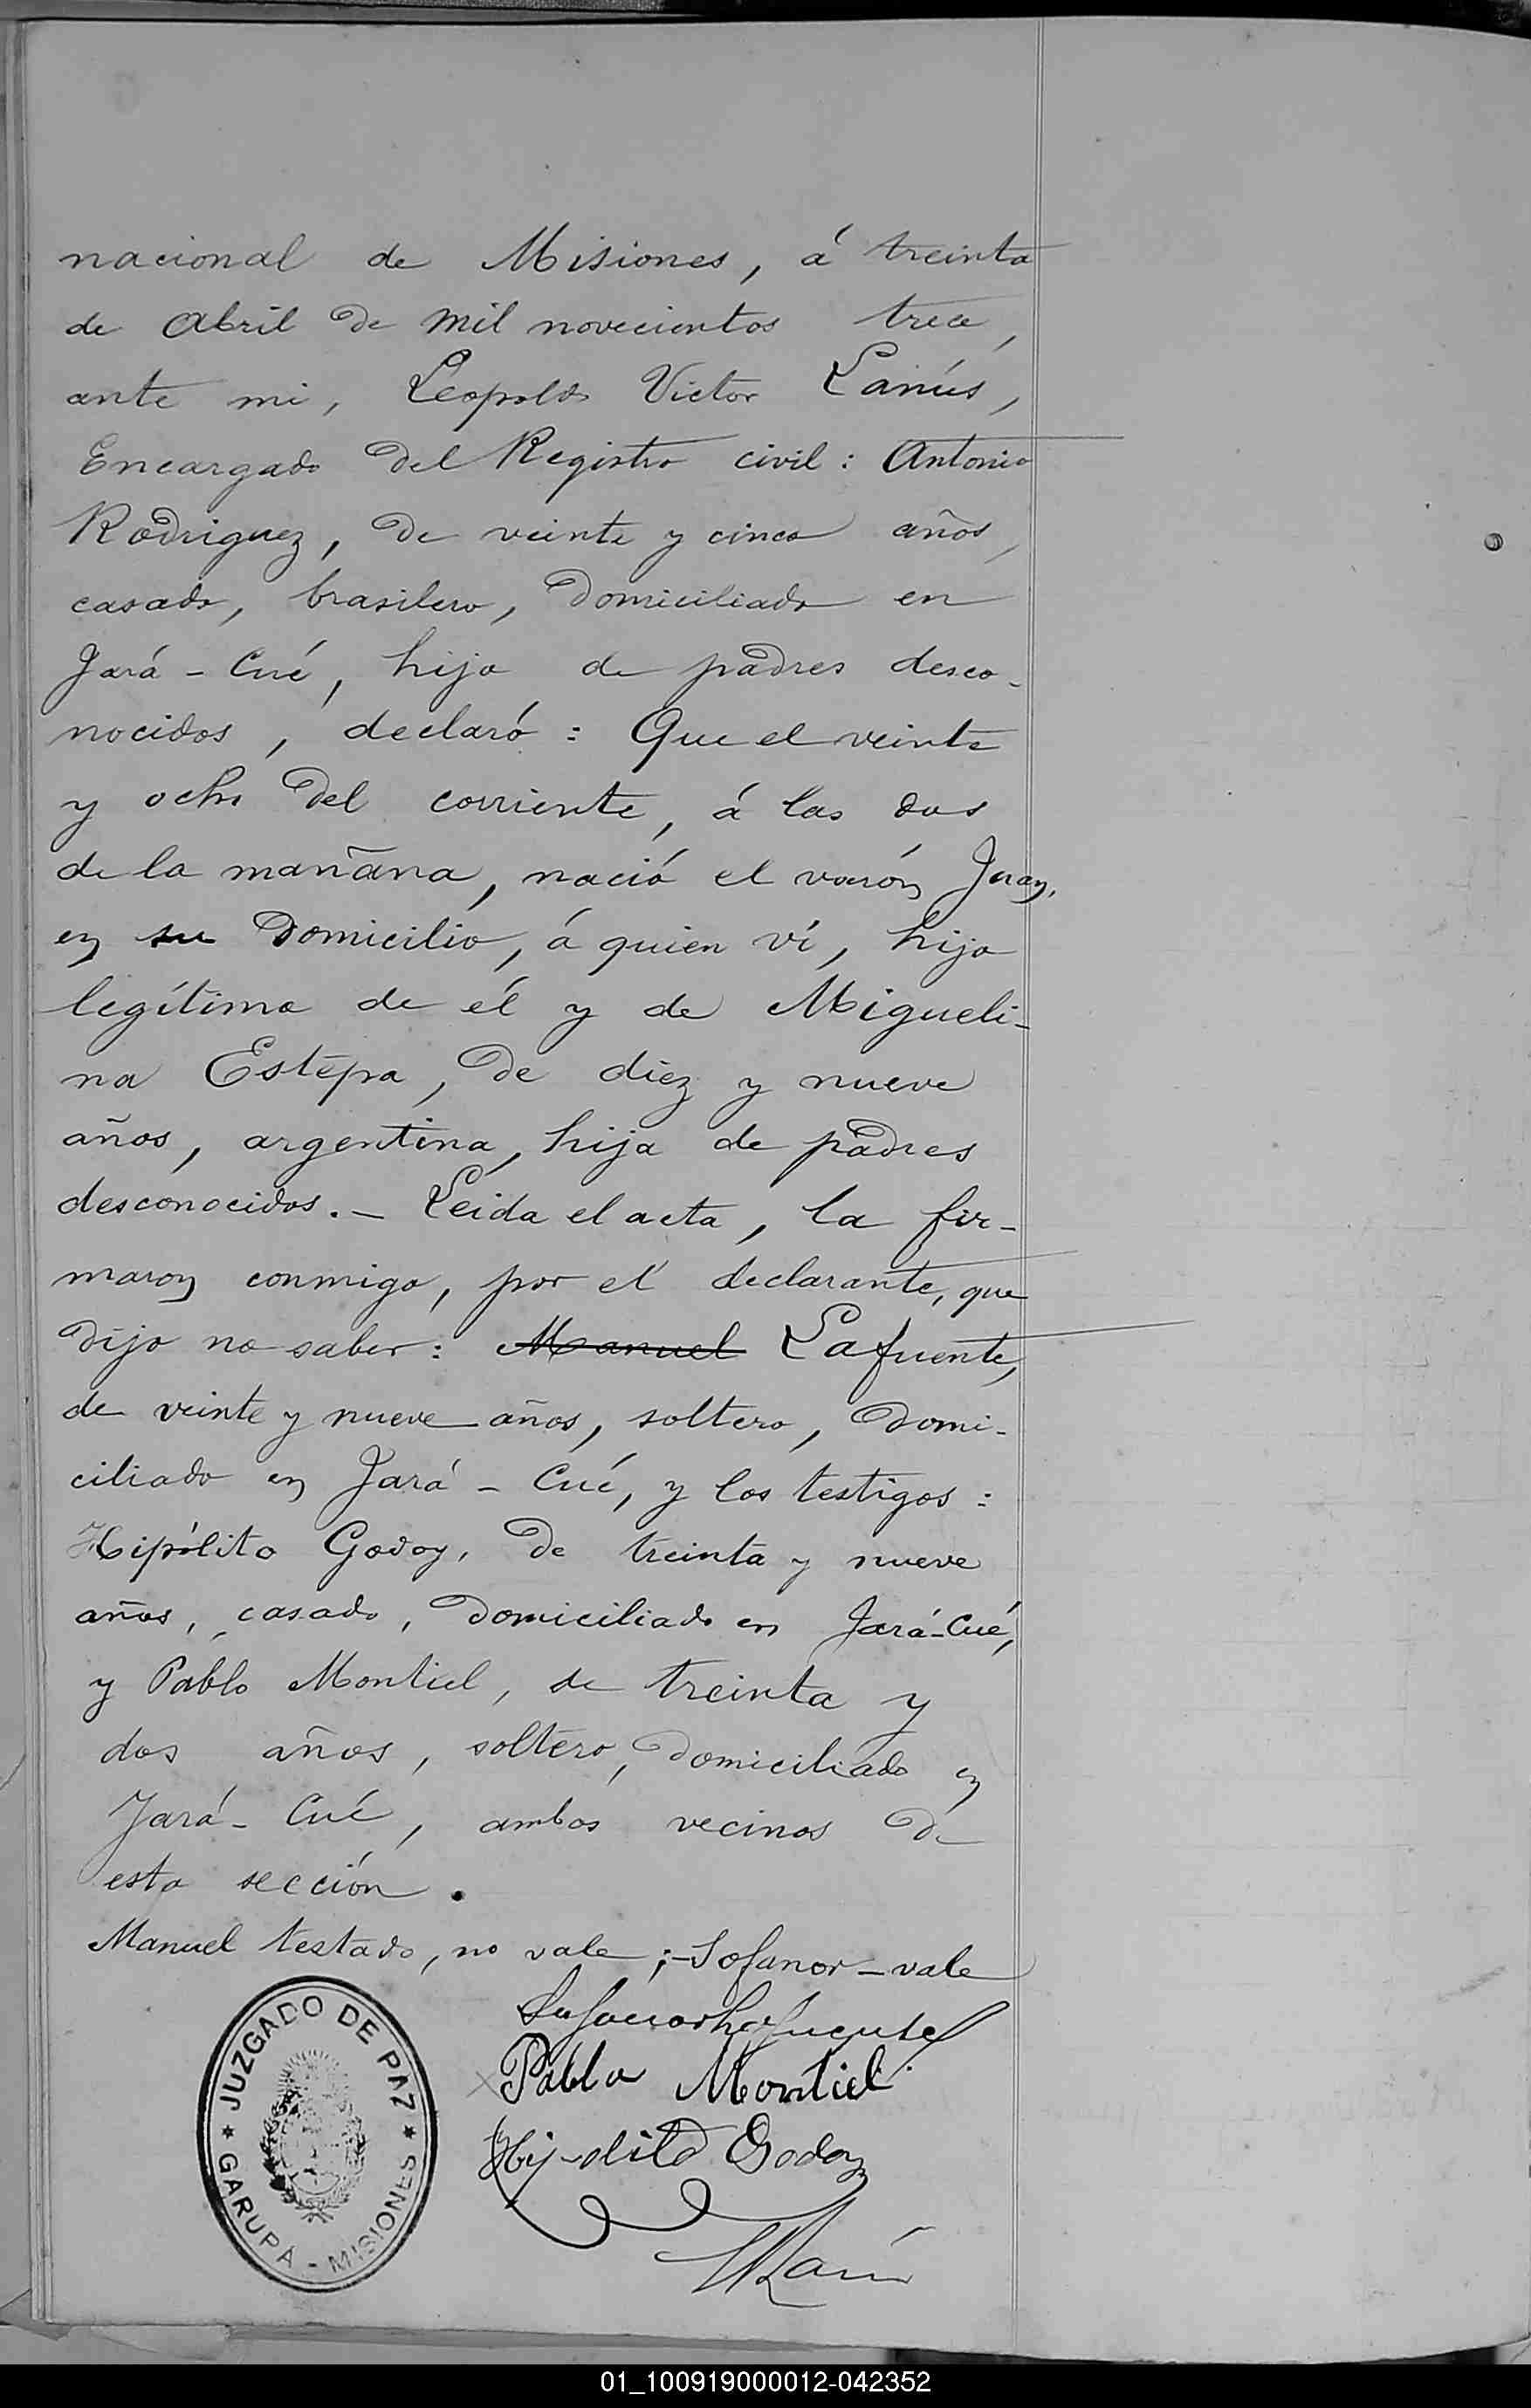 nacional de Misiones, á treinta
de Abril de mil novecientos trece,
ante mi, Leopoldo Victor Lanús,
Encargado del Registro civil: Antonio
Rodriguez, de veinte y cinco años,
casado, brasilero, domiciliado en
Jará-Cué, hijo de padres desco-
nocidos, declaró: Que el veinte
y ocho del corriente, á las dos
de la mañana, nació el varón Juan,
en su domicilio, á quien ví, hijo
legítimo de él y de Migueli-
na Estepa, de diez y nueve
años, argentina, hija de padres
desconocidos.- Leida el acta, la fir-
maron conmigo, por el declarante, que
dijo no saber: Manuel Lafuente,
de veinte y nueve años, soltero, domi-
ciliado en Jará-Cué, y los testigos:
Hipólito Godoy, de treinta y nueve
años, casado, domiciliado en Jará-Cué,
y Pablo Montiel, de treinta y
dos años, soltero, domiciliado en
Jará-Cué, ambos vecinos de
esta sección.
Manuel testado, no vale;-Sofanor-vale
Lafuente
Pablo Montiel
Hipolito Godoy
JUZGADO DE PAZ
* GARUPÁ - MISIONES *
01_100919000012-042352